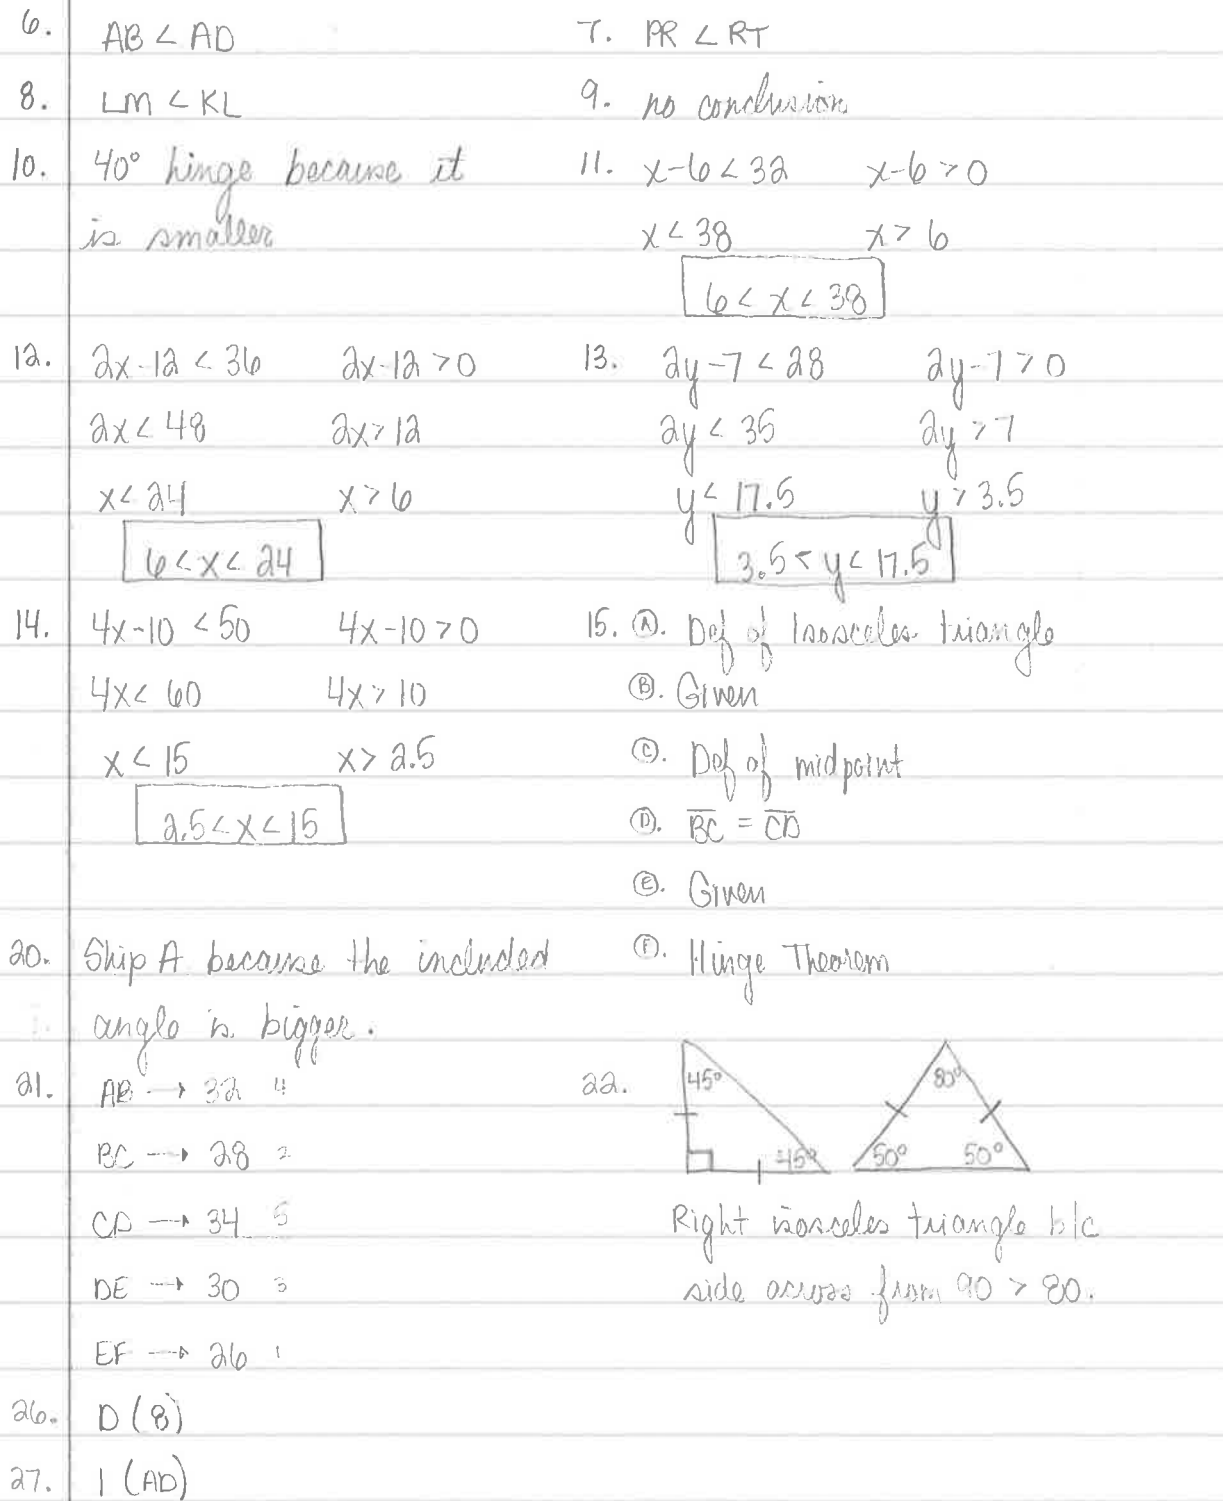 6. AB < AD
7. PR < RT
8. LM < KL
9. no conclusion
10. 40° hinge because it
is smaller
11. x-6 < 32 x-6 > 0
x < 38 x > 6
6 < x < 38
12. 2x-12 < 36 2x-12 > 0
2x < 48 2x > 12
x < 24 x > 6
6 < x < 24
13. 2y-7 < 28 2y-7 > 0
2y < 35 2y > 7
y < 17.5 y > 3.5
3.5 < y < 17.5
14. 4x-10 < 50 4x-10 > 0
4x < 60 4x > 10
x < 15 x > 2.5
2.5 < x < 15
15. Ⓐ. Def of Isosceles triangle
Ⓑ. Given
Ⓒ. Def of midpoint
Ⓓ. B̅C̅ = C̅D̅
Ⓔ. Given
Ⓕ. Hinge Theorem
20. Ship A because the included
angle is bigger.
21. AB → 32 4
BC → 28 2
CD → 34 5
DE → 30 3
EF → 26 1
22. 45° 45° 80° 50° 50°
Right isosceles triangle b/c
side across from 90 > 80.
26. D (8)
27. I (AD)